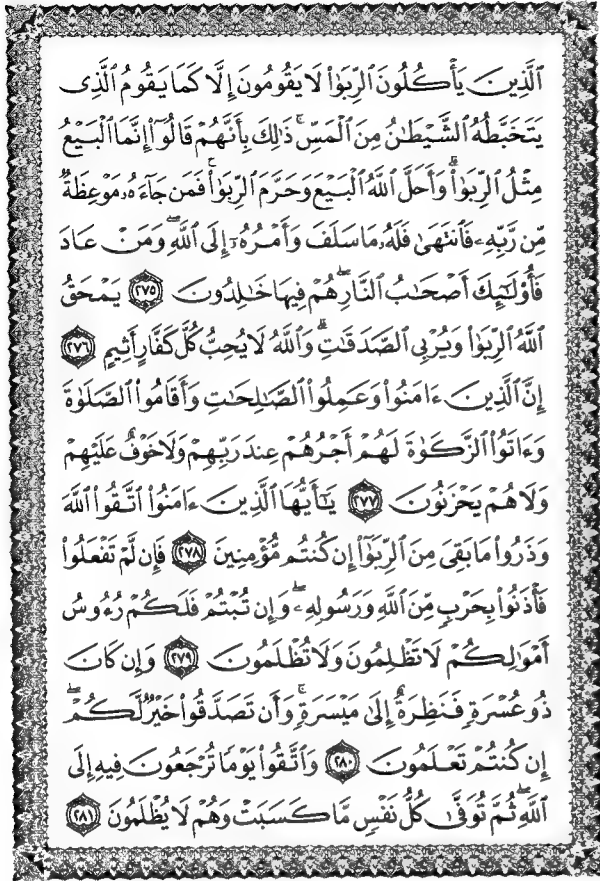 ٱلَّذِينَ يَأْكُلُونَ ٱلرِّبَوٰا۟ لَا يَقُومُونَ إِلَّا كَمَا يَقُومُ ٱلَّذِى
يَتَخَبَّطُهُ ٱلشَّيْطَـٰنُ مِنَ ٱلْمَسِّ ۚ ذَٰلِكَ بِأَنَّهُمْ قَالُوٓا۟ إِنَّمَا ٱلْبَيْعُ
مِثْلُ ٱلرِّبَوٰا۟ ۗ وَأَحَلَّ ٱللَّهُ ٱلْبَيْعَ وَحَرَّمَ ٱلرِّبَوٰا۟ ۚ فَمَن جَآءَهُۥ مَوْعِظَةٌ
مِّن رَّبِّهِۦ فَٱنتَهَىٰ فَلَهُۥ مَا سَلَفَ وَأَمْرُهُۥٓ إِلَى ٱللَّهِ ۖ وَمَنْ عَادَ
فَأُو۟لَـٰٓئِكَ أَصْحَـٰبُ ٱلنَّارِ ۖ هُمْ فِيهَا خَـٰلِدُونَ ﴿٢٧٥﴾ يَمْحَقُ
ٱللَّهُ ٱلرِّبَوٰا۟ وَيُرْبِى ٱلصَّدَقَـٰتِ ۗ وَٱللَّهُ لَا يُحِبُّ كُلَّ كَفَّارٍ أَثِيمٍ ﴿٢٧٦﴾
إِنَّ ٱلَّذِينَ ءَامَنُوا۟ وَعَمِلُوا۟ ٱلصَّـٰلِحَـٰتِ وَأَقَامُوا۟ ٱلصَّلَوٰةَ
وَءَاتَوُا۟ ٱلزَّكَوٰةَ لَهُمْ أَجْرُهُمْ عِندَ رَبِّهِمْ وَلَا خَوْفٌ عَلَيْهِمْ
وَلَا هُمْ يَحْزَنُونَ ﴿٢٧٧﴾ يَـٰٓأَيُّهَا ٱلَّذِينَ ءَامَنُوا۟ ٱتَّقُوا۟ ٱللَّهَ
وَذَرُوا۟ مَا بَقِىَ مِنَ ٱلرِّبَوٰٓا۟ إِن كُنتُم مُّؤْمِنِينَ ﴿٢٧٨﴾ فَإِن لَّمْ تَفْعَلُوا۟
فَأْذَنُوا۟ بِحَرْبٍ مِّنَ ٱللَّهِ وَرَسُولِهِۦ ۖ وَإِن تُبْتُمْ فَلَكُمْ رُءُوسُ
أَمْوَٰلِكُمْ لَا تَظْلِمُونَ وَلَا تُظْلَمُونَ ﴿٢٧٩﴾ وَإِن كَانَ
ذُو عُسْرَةٍ فَنَظِرَةٌ إِلَىٰ مَيْسَرَةٍ ۚ وَأَن تَصَدَّقُوا۟ خَيْرٌ لَّكُمْ ۖ
إِن كُنتُمْ تَعْلَمُونَ ﴿٢٨٠﴾ وَٱتَّقُوا۟ يَوْمًا تُرْجَعُونَ فِيهِ إِلَى
ٱللَّهِ ۖ ثُمَّ تُوَفَّىٰ كُلُّ نَفْسٍ مَّا كَسَبَتْ وَهُمْ لَا يُظْلَمُونَ ﴿٢٨١﴾